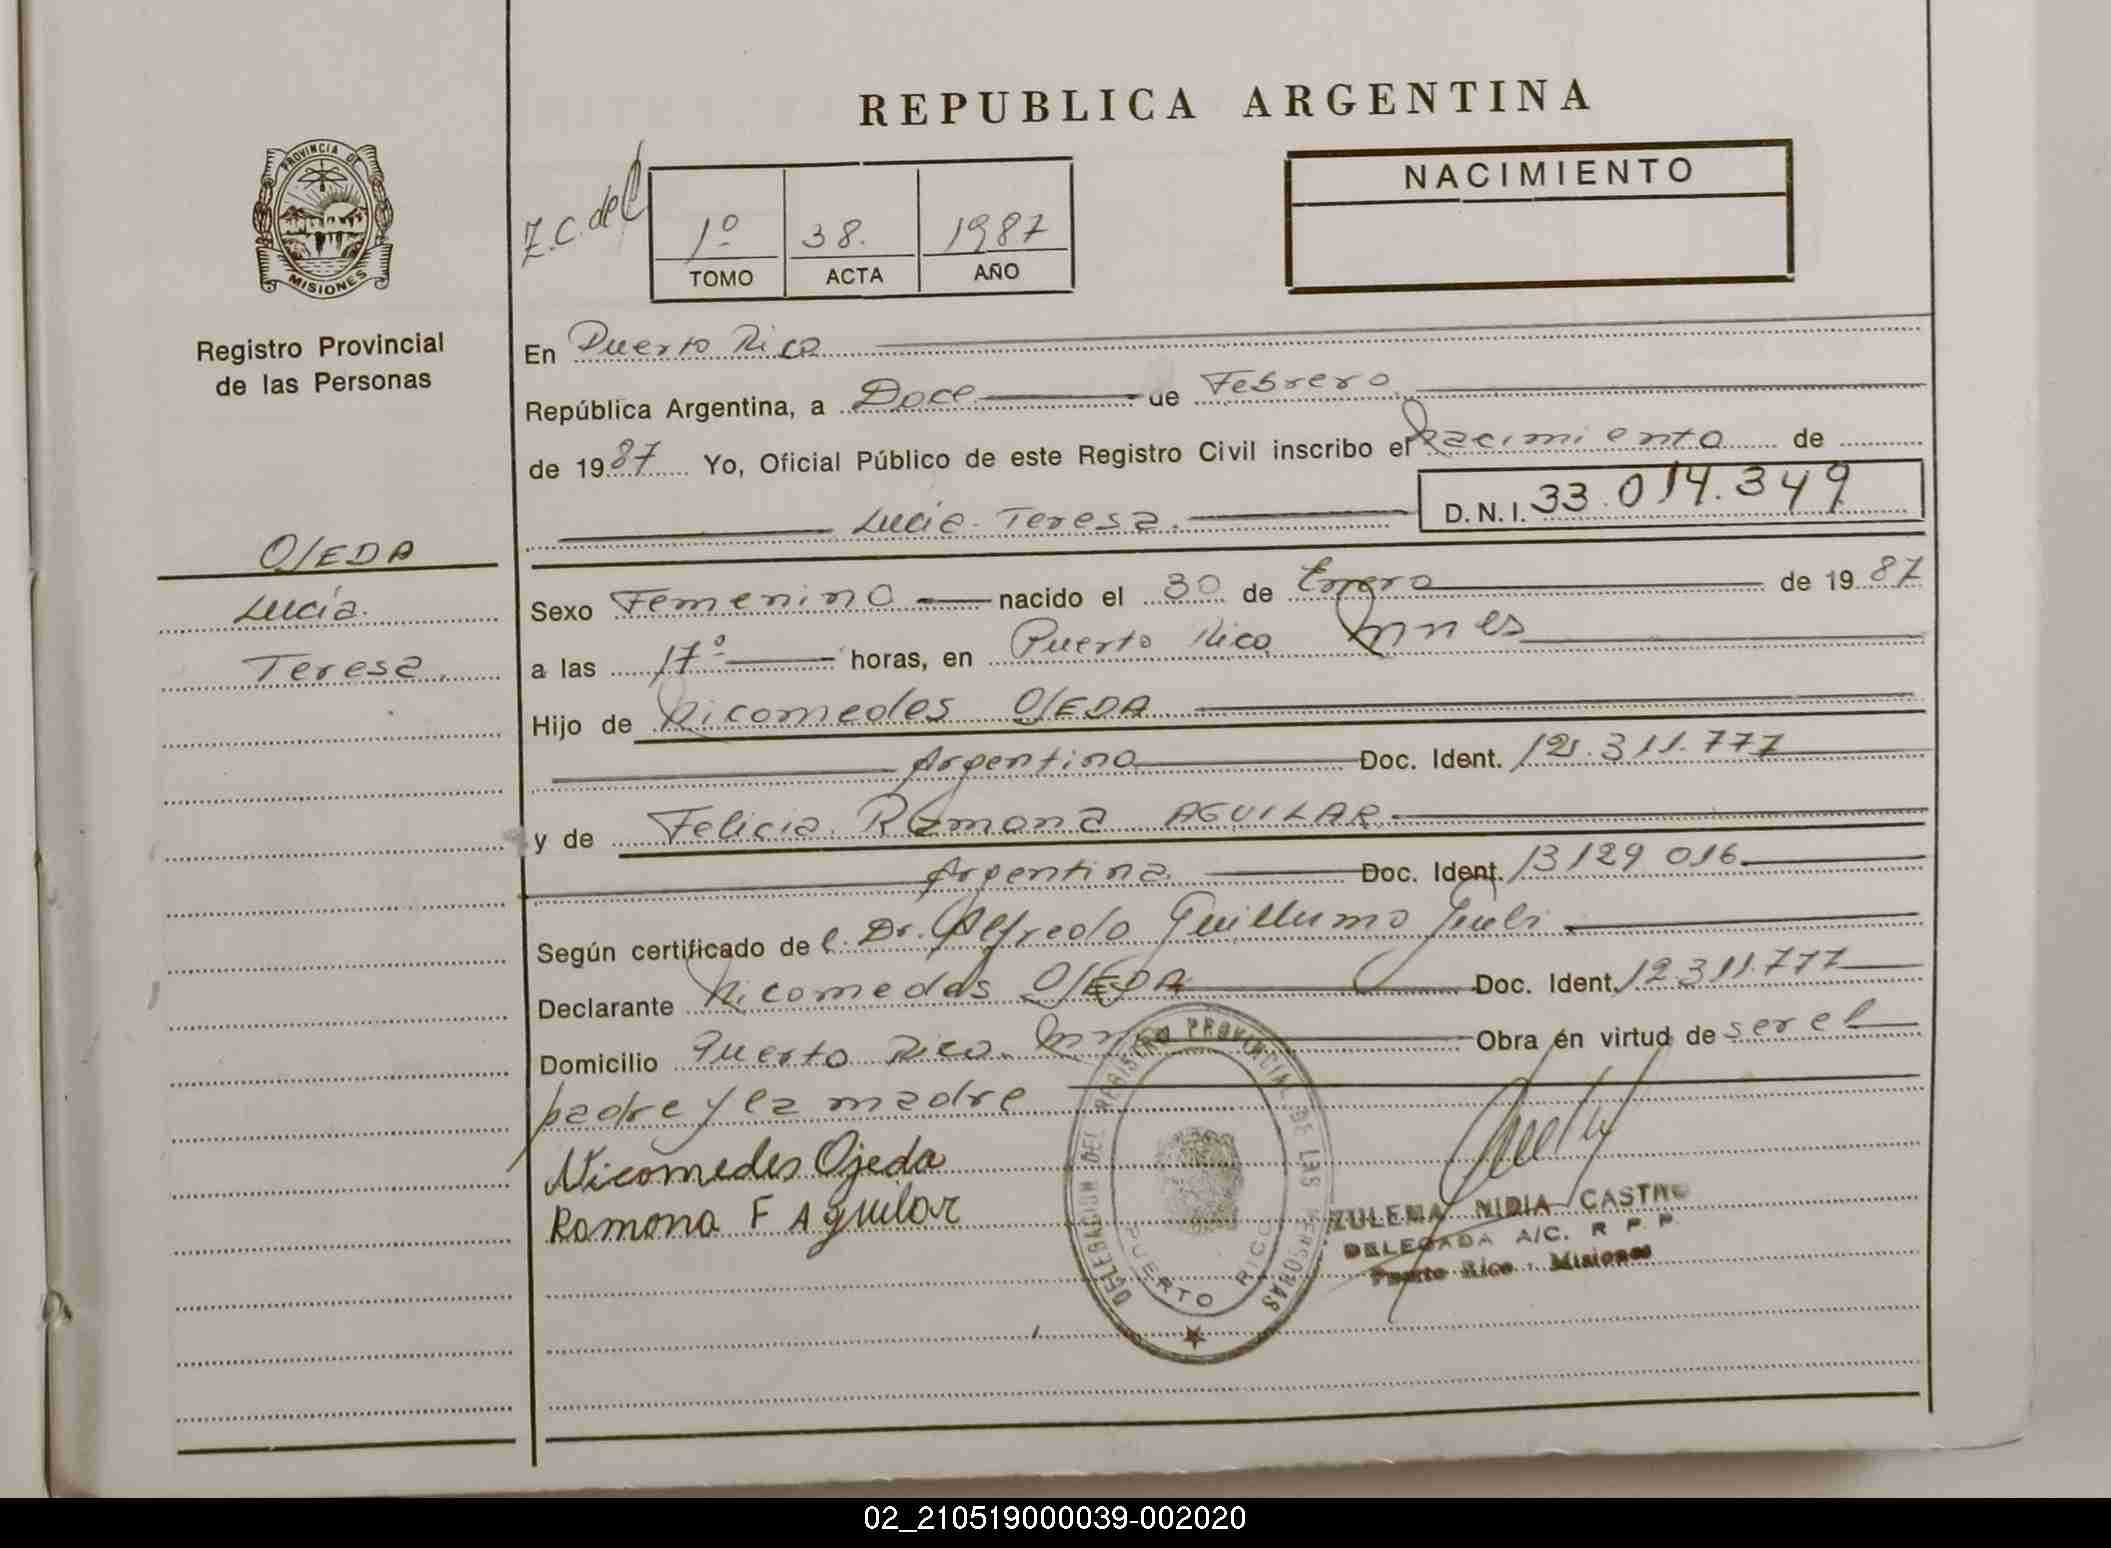 REPUBLICA ARGENTINA
PROVINCIA DE
MISIONES
Registro Provincial
de las Personas
1º 38. 1987
TOMO ACTA AÑO
NACIMIENTO
OJEDA
Lucía.
Teresa.
En Puerto Rico
República Argentina, a Doce de Febrero
de 1987 Yo, Oficial Público de este Registro Civil inscribo el nacimiento de
Lucia Teresa. D.N.I. 33.014.349
Sexo Femenino nacido el 30 de Enero de 1987
a las 17º horas, en Puerto Rico Mnes
Hijo de Nicomedes OJEDA
Argentino Doc. Ident. 12.311.777
y de Felicia Ramona AGUILAR
Argentina Doc. Ident. 13129016
Según certificado de l. Dr. Alfredo Guillermo
Declarante Nicomedes OJEDA Doc. Ident. 12.311.777
Domicilio Puerto Rico. Obra en virtud de ser el
padre y la madre
Nicomedes Ojeda
Ramona F Aguilar
DELEGACION DEL REGISTRO PROVINCIAL DE LAS PERSONAS
PUERTO RICO
ZULEMA NIDIA CASTRO
DELEGADA A/C. R P P
Puerto Rico - Misiones
02_210519000039-002020